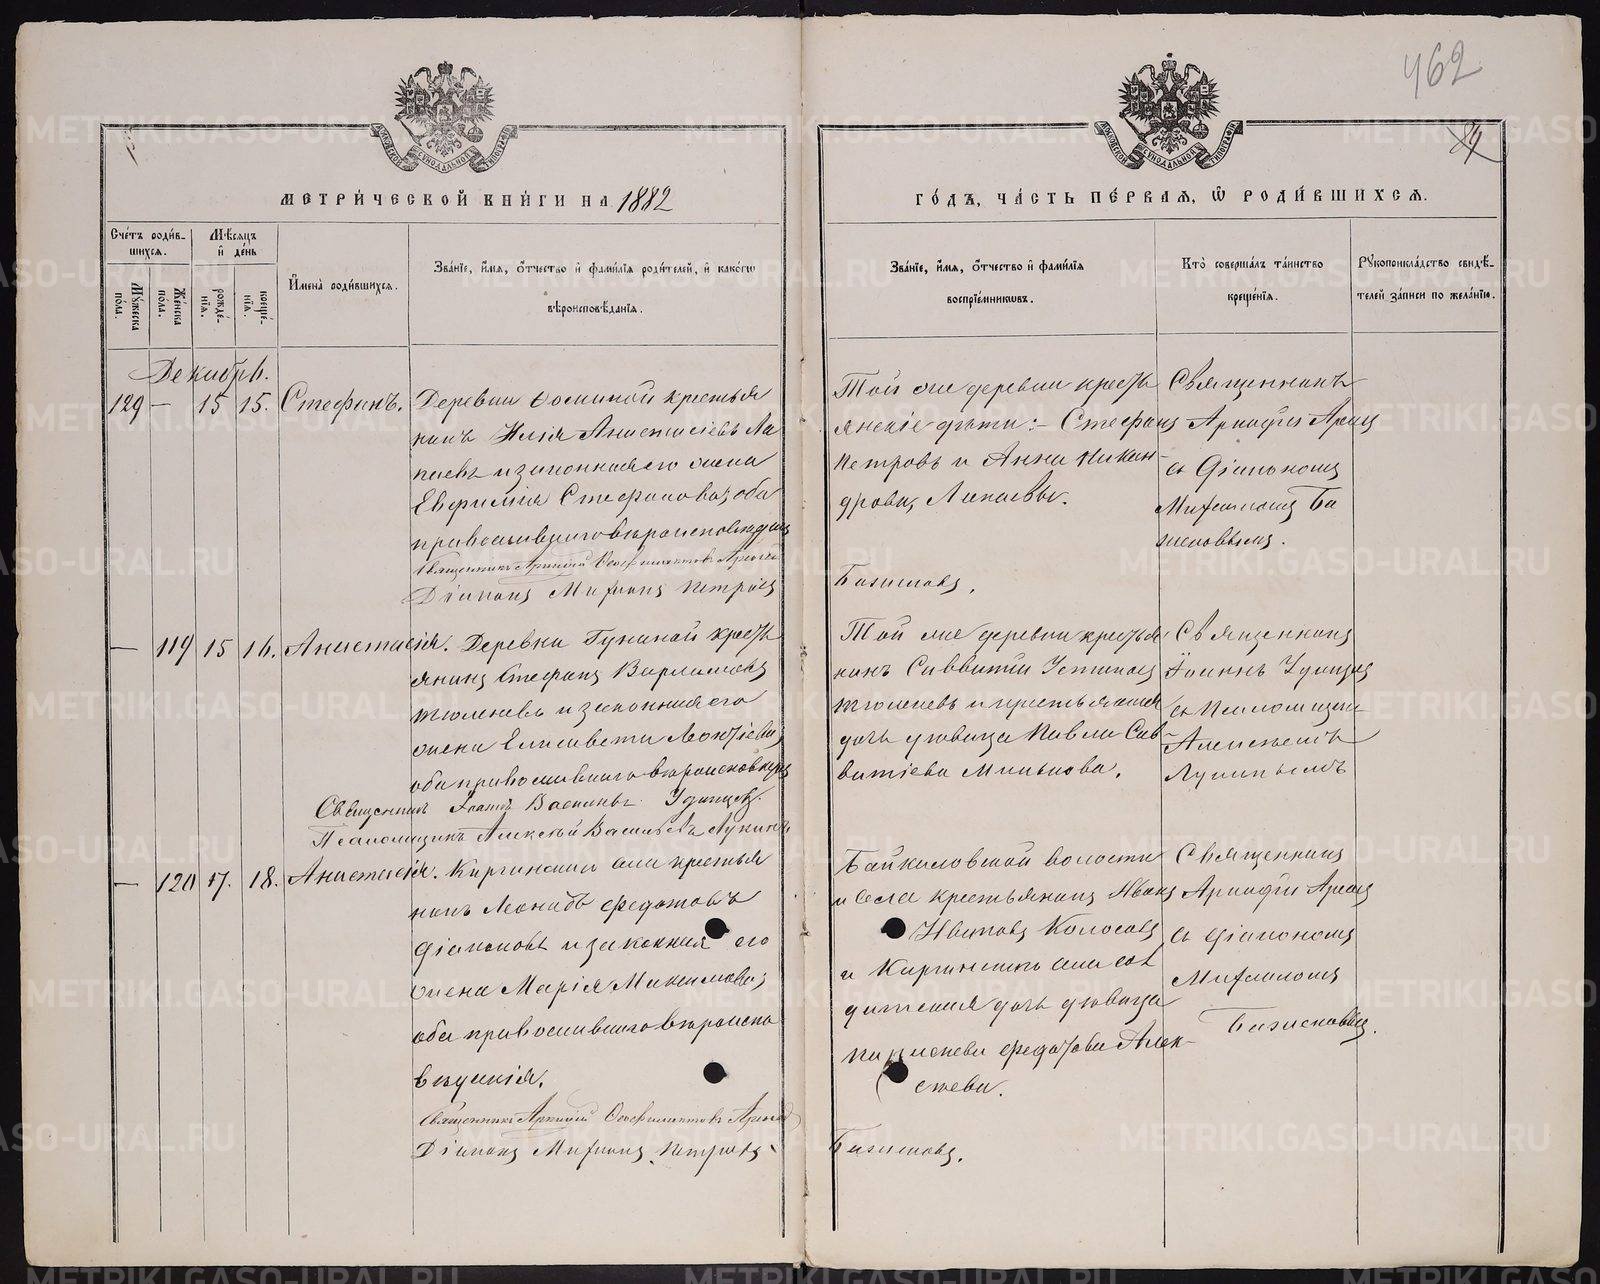 462
84
МОСКОВСКОЙ СѴНОДАЛЬНОЙ ТИПОГРАФІИ
МОСКОВСКОЙ СѴНОДАЛЬНОЙ ТИПОГРАФІИ
МЕТРИ́ЧЕСКОЙ КНИ́ГИ НА 1882
ГО́ДЪ, ЧА́СТЬ ПЕ́РВАЯ, Ѡ РОДИ́ВШИХСЯ.
Сче́тъ роди́в-
шихся.
Му́жеска
по́ла.
Же́нска
по́ла.
Мѣ́сяцъ
и҆ де́нь
рожде́-
нїя.
креще́-
нїя.
И҆мена̀ роди́вшихся.
Зва́нїе, и҆́мя, ѻ҆́тчество и҆ фами́лїя роди́телей, и҆ како́гѡ
вѣроисповѣ́данїя.
Зва́нїе, и҆́мя, ѻ҆́тчество и҆ фами́лїя
воспрїе́мникѡвъ.
Кто̀ соверша́лъ та́инство
креще́нїя.
Рꙋкоприкла́дство свидѣ́-
телей за́писи по жела́нїю.
Декабрь.
129 — 15 15. Стефанъ.
Деревни Фоминой крестья
нинъ Илія Анастасіевъ Ла
паевъ и законная его жена
Евфимія Стефанова; оба
православнаго вѣроисповѣданія
Священникъ Аркадій Ѳеофилактовъ
Діаконъ Михаилъ Петровъ
Той же деревни кресть
янскіе дѣти:- Стефанъ
Петровъ и Анна Никан-
дрова, Лапаевы.
Баженовъ.
Священникъ
Аркадій
съ Діакономъ
Михаиломъ Ба
женовымъ.
— 119 15 16. Анастасія.
Деревни Гуниной кресть
янинъ Стефанъ Варламовъ
Тюленевъ и законная его
жена Елисавета Леонтіева;
оба православнаго вѣроисповѣд
Священникъ Іоаннъ Васильевъ Удинцевъ.
Псаломщикъ Алексѣй Васильевъ Лукинъ
Той же деревни крестья
нинъ Савватій Устиновъ
Тюленевъ и крестьянская
дочь дѣвица Павла Сав-
ватіева Минькова.
Священникъ
Іоаннъ Удинцевъ
съ Псаломщик
Алексѣемъ
Лукинымъ
— 120 17. 18. Анастасія.
Киргинскаго села крестья
нинъ Леонидъ Федотовъ
Діаконовъ и законная его
жена Марія Максимова;
оба православнаго вѣроиспо
вѣданія.
Священникъ Аркадій Ѳеофилактовъ
Діаконъ Михаилъ Петровъ
Байкаловской волости
и села крестьянинъ Иванъ
Ивановъ Колосовъ
и Киргинскаго села сол
датская дочь дѣвица
Федотова Алек-
сѣева.
Баженовъ.
Священникъ
Аркадій
съ Діакономъ
Михаиломъ
Баженовым.